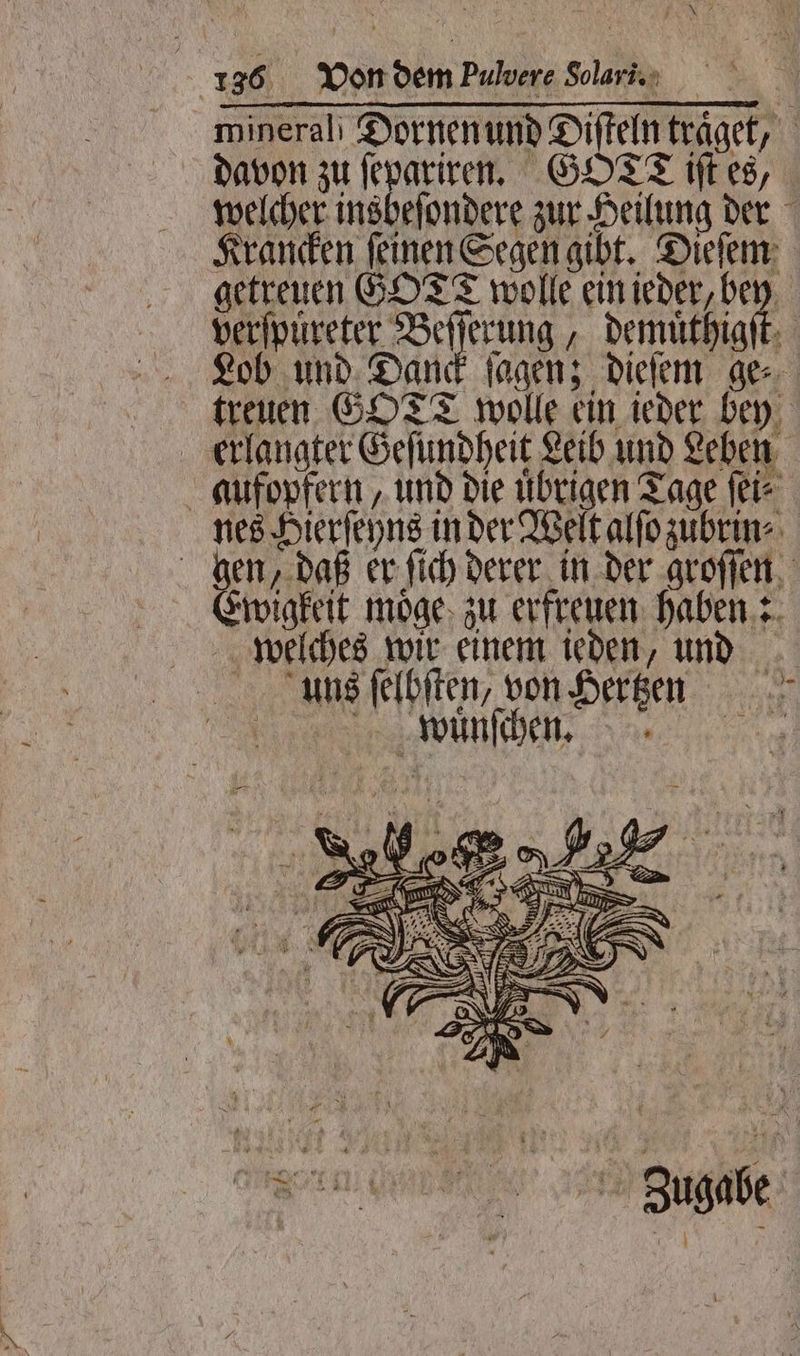 136 Von dem Pulvere Solari.
mineral⸗ Dornen und Diſteln traͤget,
davon zu ſepariren. GOTT iſt es,
welcher insbeſondere zur Heilung der
Krancken ſeinen Segen gibt. Dieſem
getreuen GOTT wolle ein ieder, bey
verſpuͤreter Beſſerung, demuͤthigſt
Lob und Danck ſagen; dieſem ge⸗
treuen GOTT wolle ein ieder bey
erlangter Geſundheit Leib und Leben
aufopfern, und die uͤbrigen Tage ſei⸗
nes Hierſeyns in der Welt alſo zubrin⸗
gen, daß er ſich derer in der groſſen
Ewigkeit moͤge zu erfreuen haben:
welches wir einem ieden, und
uns ſelbſten, von Hertzen
wuͤnſchen.
Zugabe